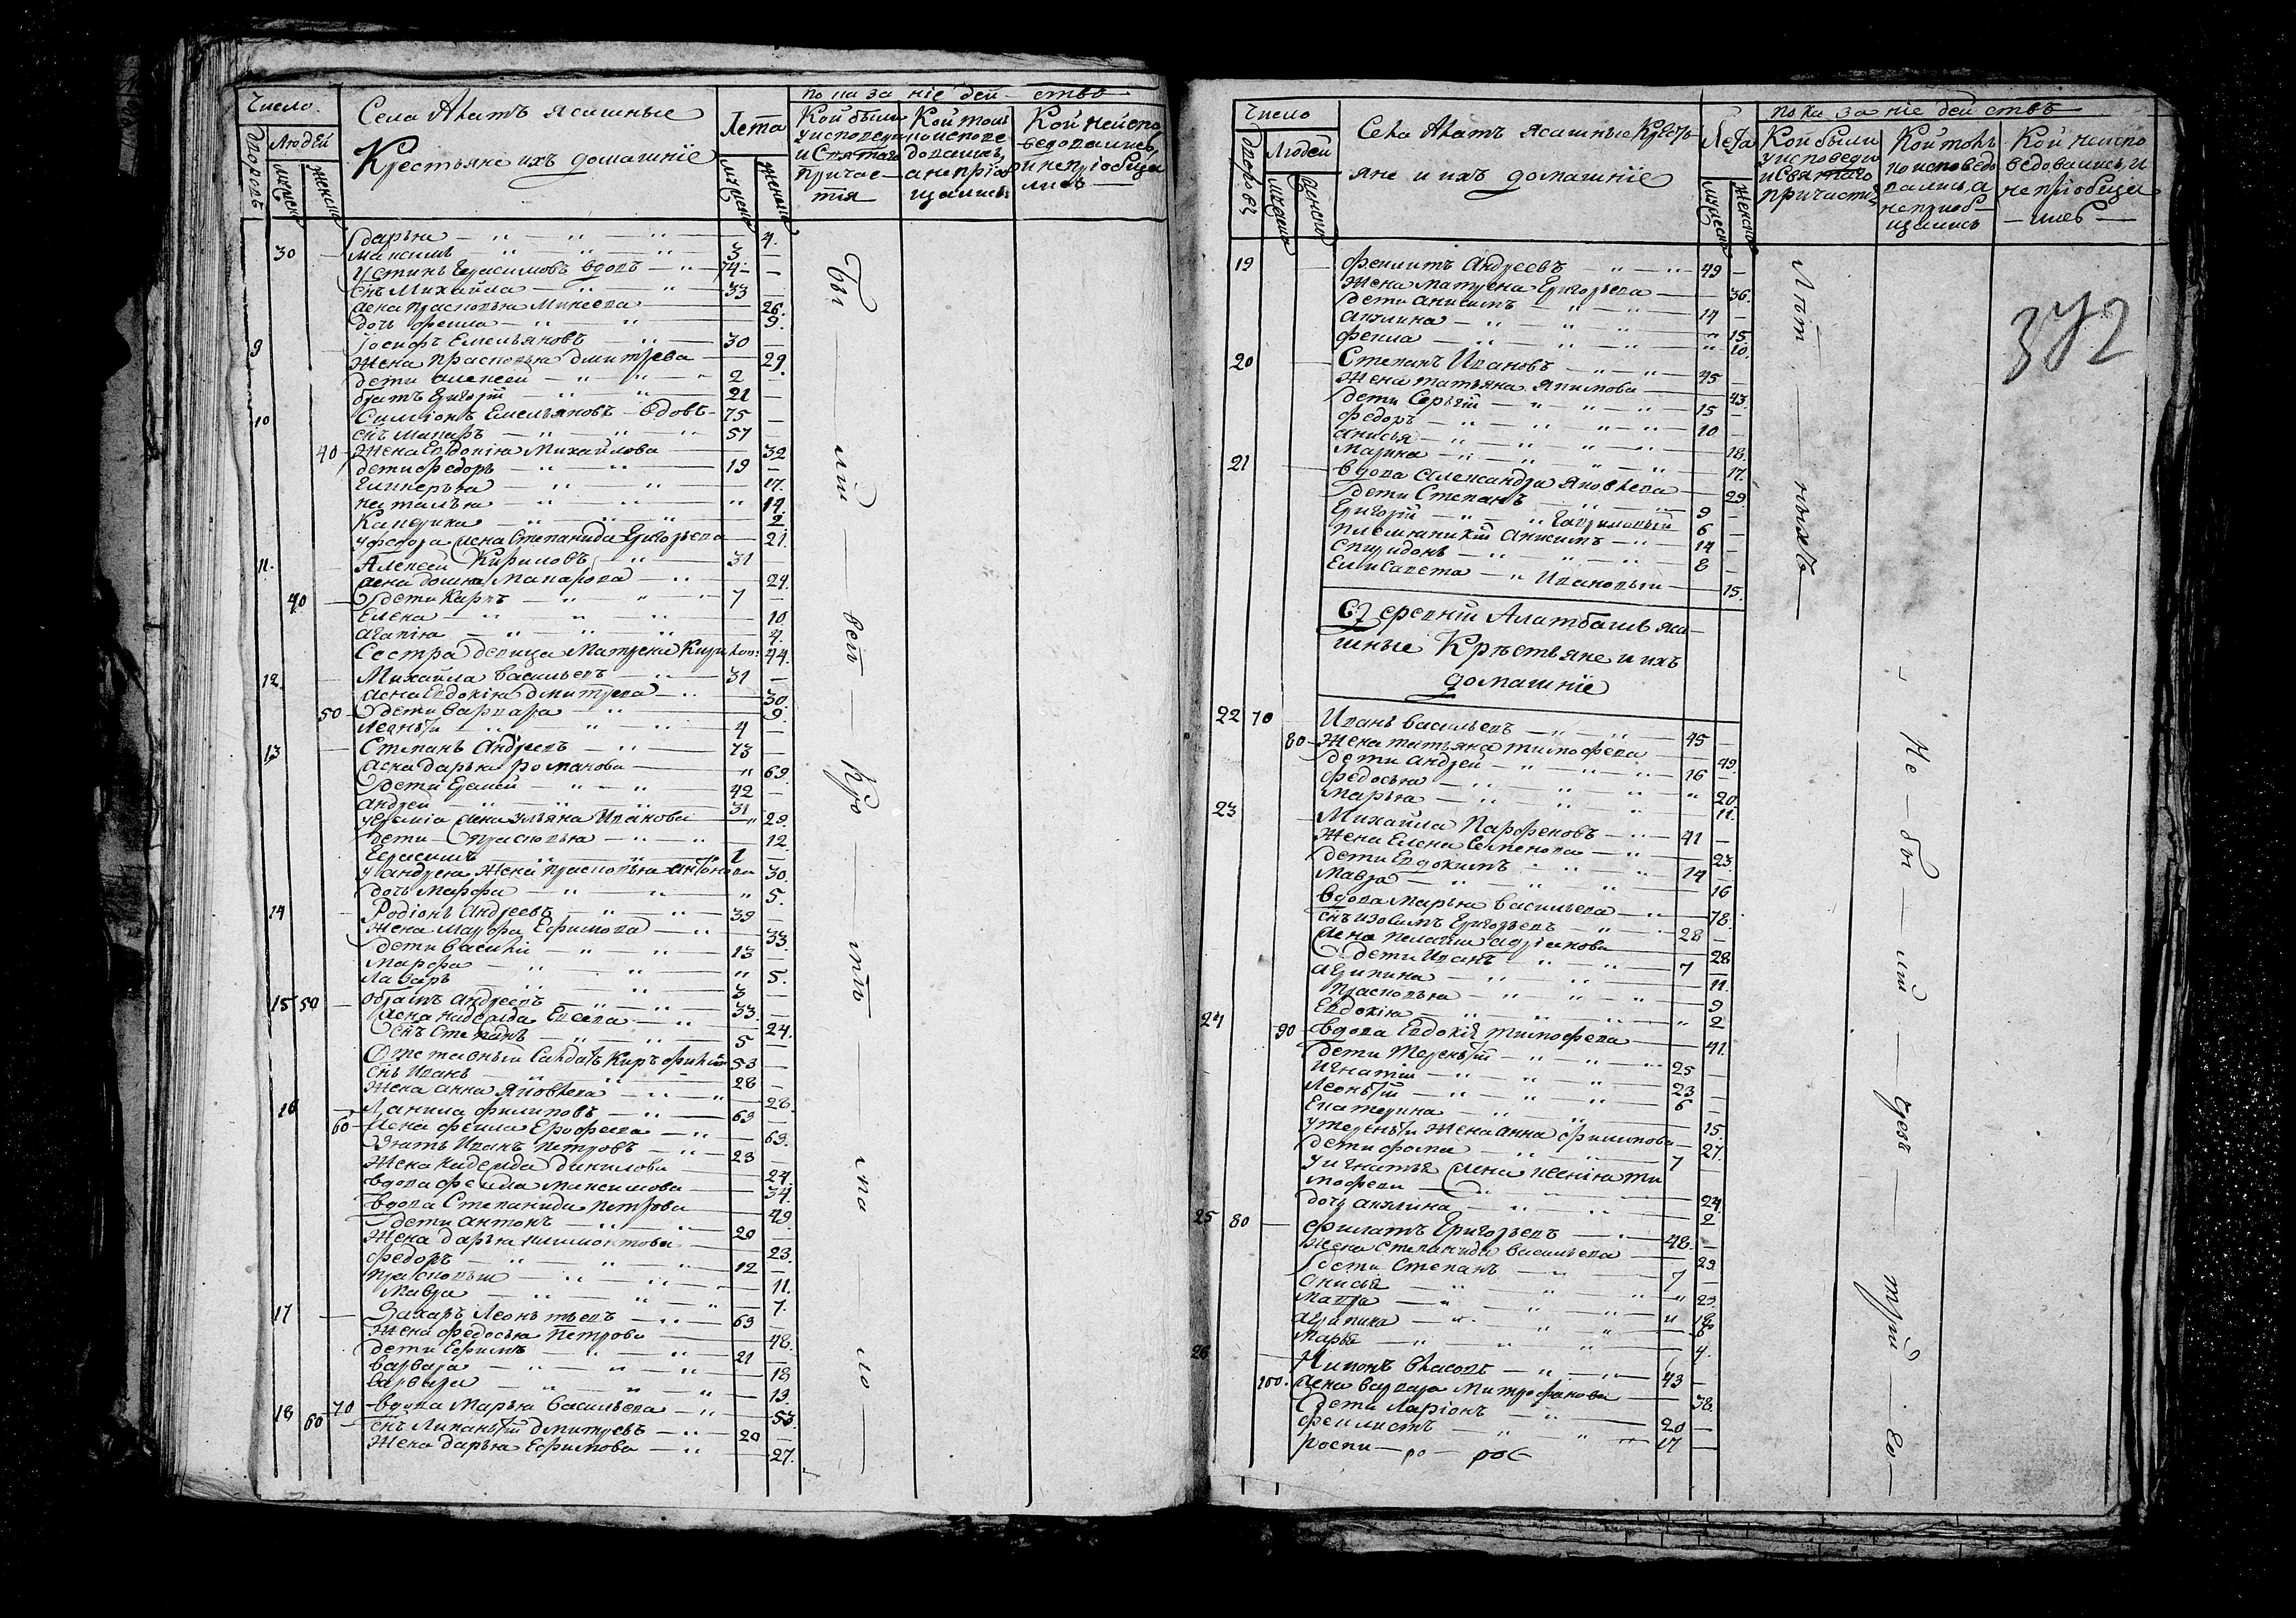 Число
Села Акатъ ясашные
Крестьяне ихъ домашніе
Людей
Лета
дворовъ
мужеска
женска
мужеска
женска
показаніе действо
Кои были у исповеди и Святаго причастія
Кои токмо исповедовались, а не пріобщались
Кои неисповедовались и непріобщались
дарья — 4.
30 Максимъ — 3
Устинъ Герасимовъ вдовъ — 74
снъ Михайла — 33
жена прасковья Минеева — 26.
дочь фекла — 9.
9 Іосифъ Емельяновъ — 30
Жена прасковья дмитрева — 29.
дети алексей — 2
братъ Григорій — 21
10 Симионъ Емельяновъ вдовъ — 75
снъ Макаръ — 57
40 Жена Евдокія Михайлова — 32
дети федоръ — 19
Гликерья — 17.
наталья — 14.
Катерина — 2.
у федора жена Степанида Григорьева — 21.
11. Алексей Кириловъ — 31
жена домна Макарова — 24.
40 дети Карпъ — 7
Елена — 10.
агапія — 4.
Сестра девица Матрена Кирилов: 44.
12. Михайла васильевъ — 31
жена Евдокія дмитрева — 30.
50 дети варвара — 9.
Леонътй — 4
13 Степанъ Андреевъ — 73
жена дарья романова — 69.
дети Еремей — 42
андрей — 31
у Еремія жена ульяна Иванова — 29
дети прасковья — 12.
Герасимъ — 1
у андрея жена прасковья антонова 30.
дочь Марфа — 5.
14 Родіонъ Андреевъ — 39
Жена Марфа Ефимова — 33.
дети василій — 13
Марфа — 5.
Лазарь — 3
15 50 братъ андреевъ — 33.
жена надежда Евсева — 24.
снъ Степанъ — 5
Отставный Салдатъ Киръ 53
снъ Иванъ — 28
Жена анна Яковлева — 28.
16 Данила филиповъ — 63
60 жена фекла Ерофеева — 63.
зять Иванъ петровъ — 23
жена надежда данилова — 24.
вдова фекла Максимова — 34.
вдова Степанида петрова — 49.
дети антонъ — 20
Жена дарья — 23.
федоръ — 12
прасковья — 11.
Мавра — 7.
17 Захаръ Леонтьевъ — 63
Жена федосья петрова — 48.
дети Ефимъ — 21
варвара — 18
варвара — 13.
18 60 70 вдова Марья васильева — 53.
снъ дмитревъ — 20
Жена дарья Ефимова — 27.
Бы — ли — всй — Кро — мѣ — ма — ло
Число
Села Акатъ ясашные Кресть
яне и ихъ домашніе
Людей
Лета
дворовъ
мужеска
женска
мужеска
женска
показаніе действъ
Кои были у исповеди и Святаго причастія
Кои токмо исповедовались, а непріобщались
Кои неисповедовались, и непріобщались
372
19 феклитъ Андреевъ — 49
Жена матрена Григорьева — 36.
дети анисимъ — 14
акулина — 15.
фекла — 10.
20 Степанъ Ивановъ — 45
Жена татьяна Якимова — 43.
дети Сергій — 15
федоръ — 10
анисья — 18.
Марина — 17.
21 вдова Александра Яковлева — 29.
дети Степанъ — 9
Григорій — Гавриловы — 6
племянники анисимъ — 14
Спиридонъ — 8
Елисавета — Ивановы — 15.
Середній Алатбашъ яса-
шные Крѣстьяне и ихъ
домашніе
22 70 Иванъ васильевъ — 45
80 Жена татьяна тимофеева — 49.
дети андрей — 16
федосья — 20.
Марья — 11.
23 Михайла Парфеновъ — 41
Жена Елена Семенова — 23.
дети Евдокимъ — 14
Мавра — 16
вдова Марья васильева — 78.
снъ изовимъ Григорьевъ — 28
жена пелагия адріянова — 28
дети Иванъ — 7
агрипина — 11.
прасковья — 9
Евдокія — 2
24 90 вдова Евдокія тимофеева — 41.
дети Терентій — 25
Игнатій — 23
Леонътй — 6
Екатерина — 15.
у терентья жена анна филипова — 27.
дети фома — 7
у игнатья жена ксенія ти
мофеева — 24.
дочь акулина — 2
25 80 филатъ Григорьевъ — 48.
жена степанида васильева — 29.
дети Степанъ — 7
Онисья — 23.
Мавра — 18
агрипина — 8
Марья — 4.
26 Никонъ власовъ — 43
100. жена варвара Митрофанова — 38.
дети Ларіонъ — 20
феклистъ — 17
роспи — ро — рос
Лѣт — ныхъ
Не — бы — ли — чрезъ — три — го